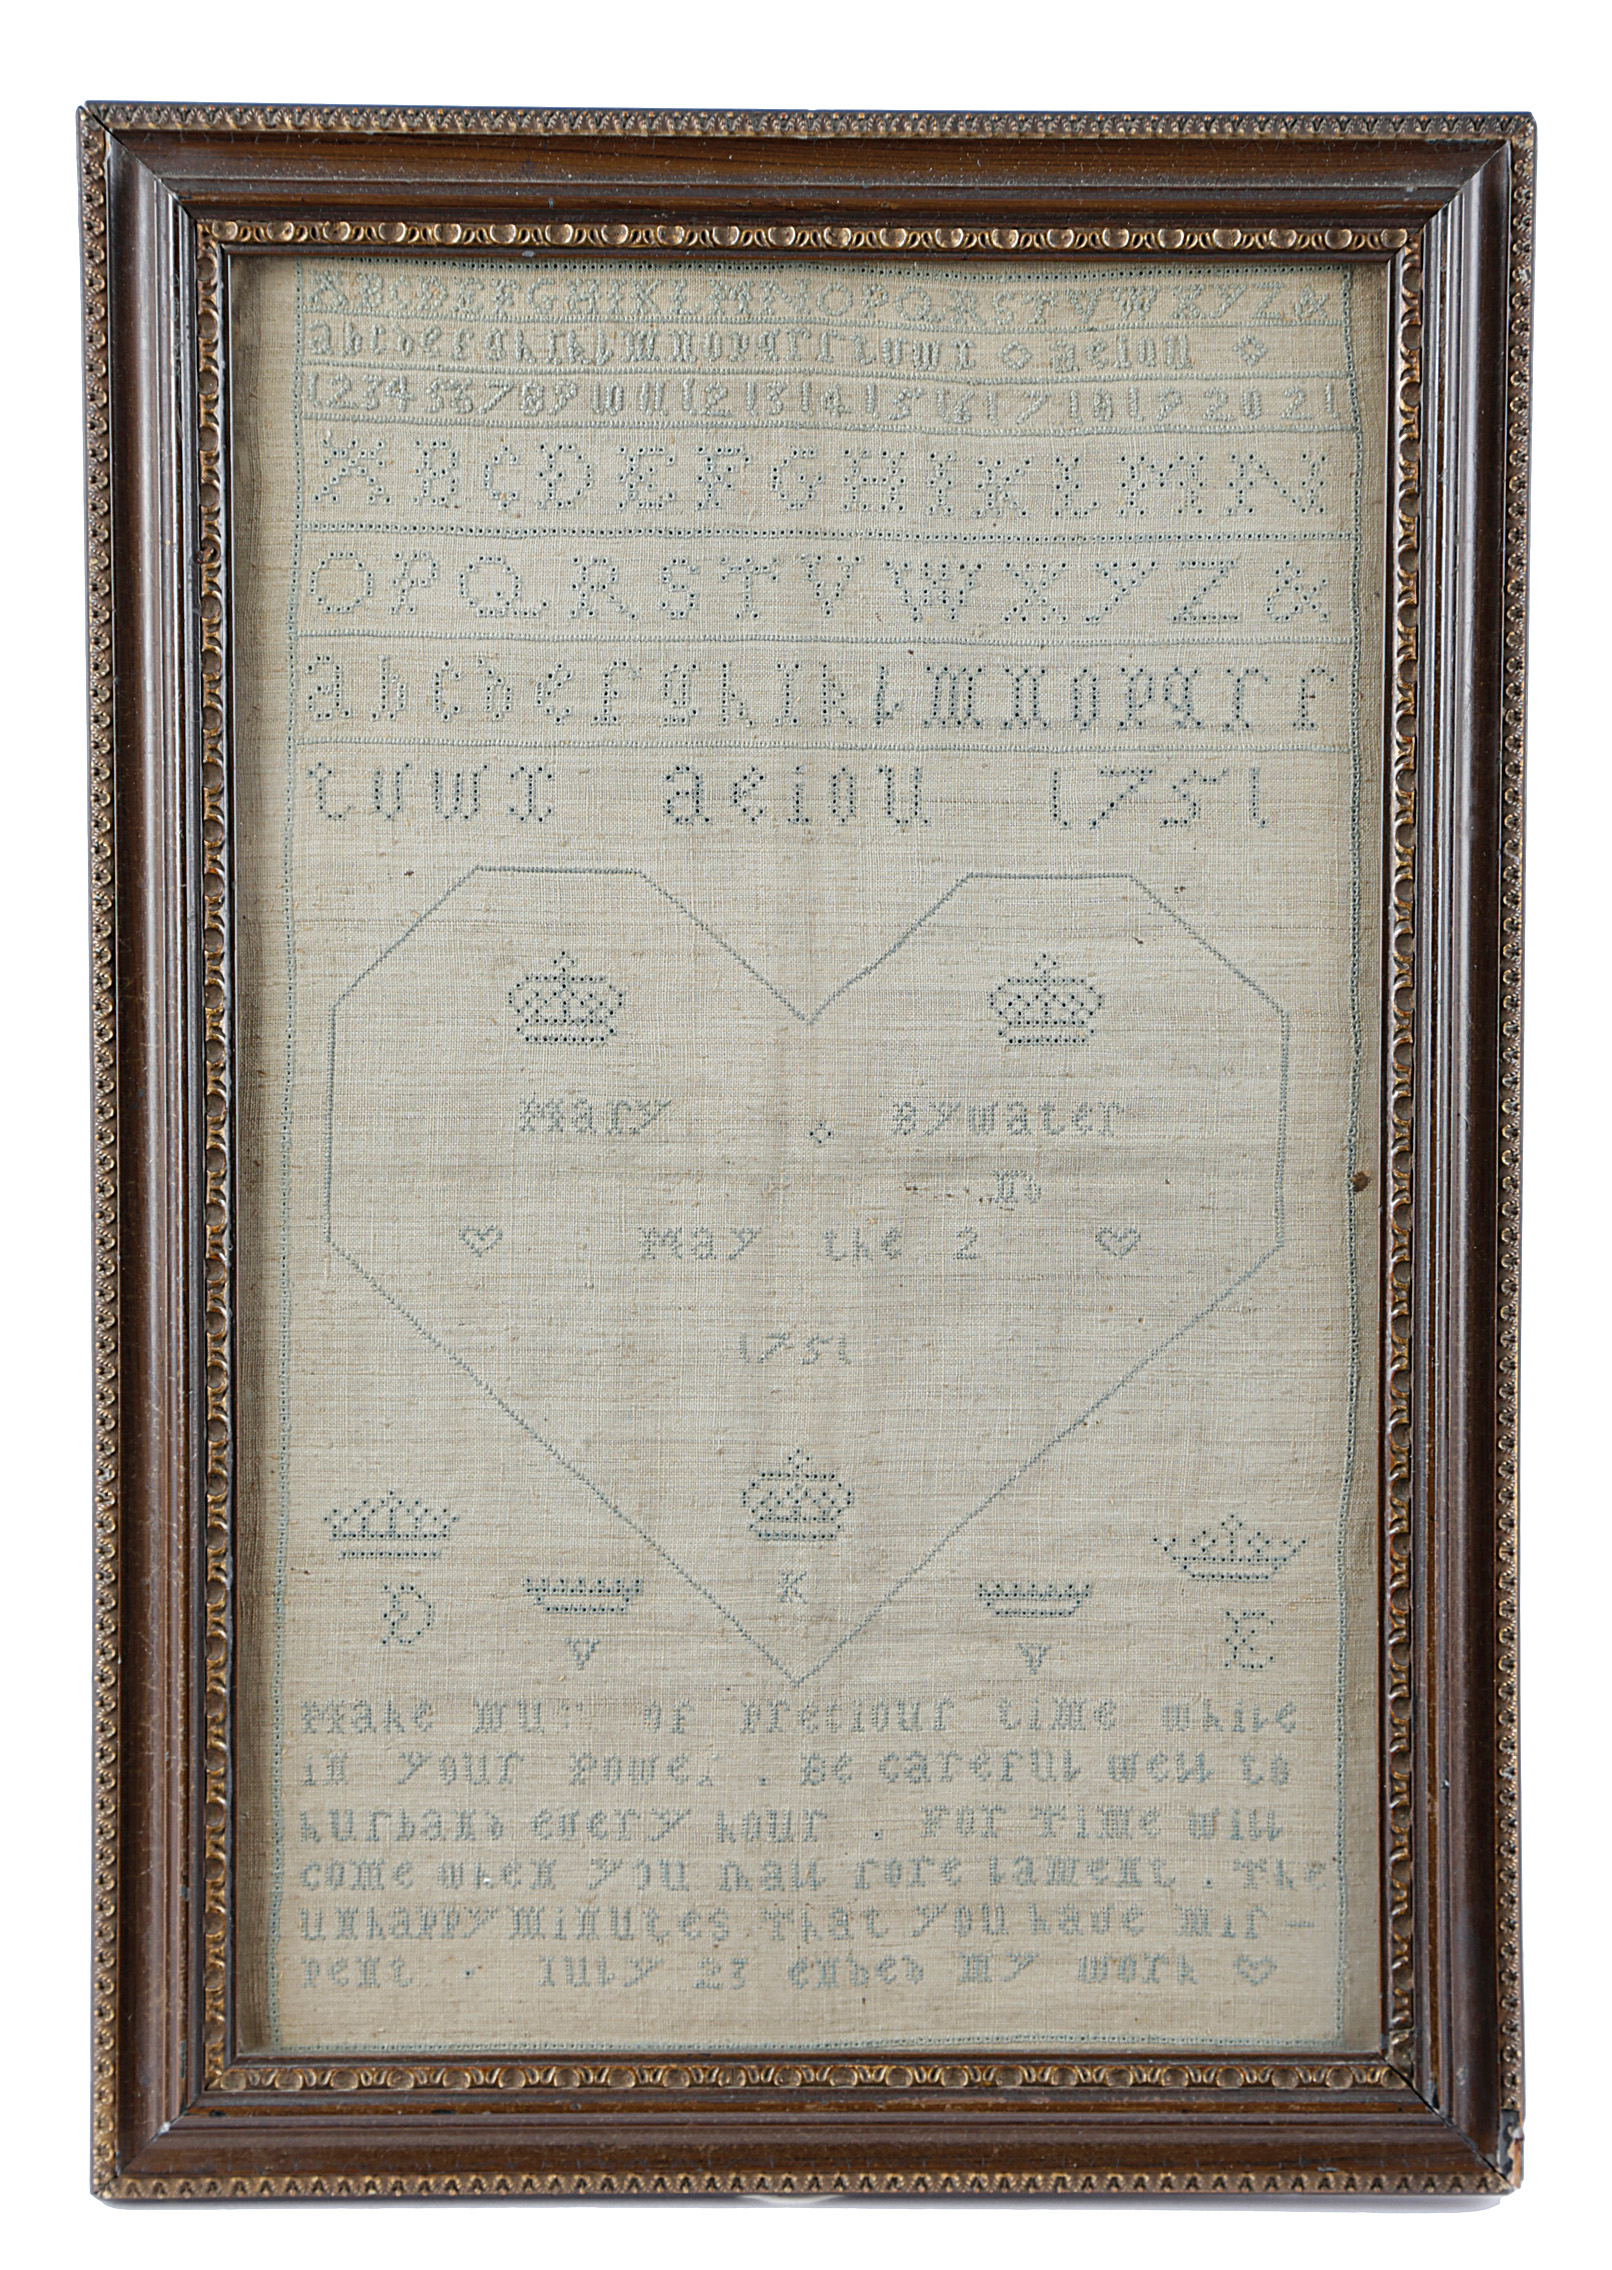 A B C D E F G H I K L M N O P Q R S T V W X Y Z &
a b c d e f g h i k l m n o p q r ſ t u w x a e i o u
1 2 3 4 5 6 7 8 9 10 11 12 13 14 15 16 17 18 19 20 21
A B C D E F G H I K L M N
O P Q R S T V W X Y Z &
a b c d e f g h i k l m n o p q r ſ
t v w x a e i o u 1751
Mary Bywater
D
May the 2
1751
K
D V V E
Make much of Preciouſ time while
in your Power . Be careful well to
huſband every hour . For Time will
come when you ſhall ſore lament . The
unhappy minutes That you have miſ-
ſpent . Iuly 23 ended my work